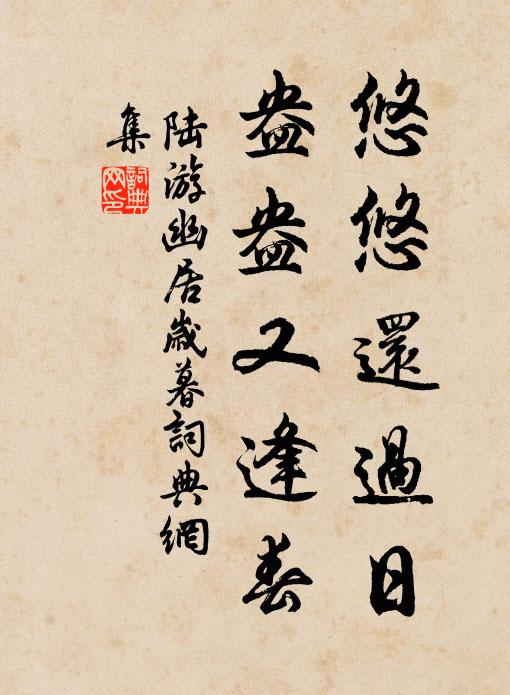 悠悠還過日
盎盎又逢春
陆游幽居歲暮詞典網
集
詞典
网印